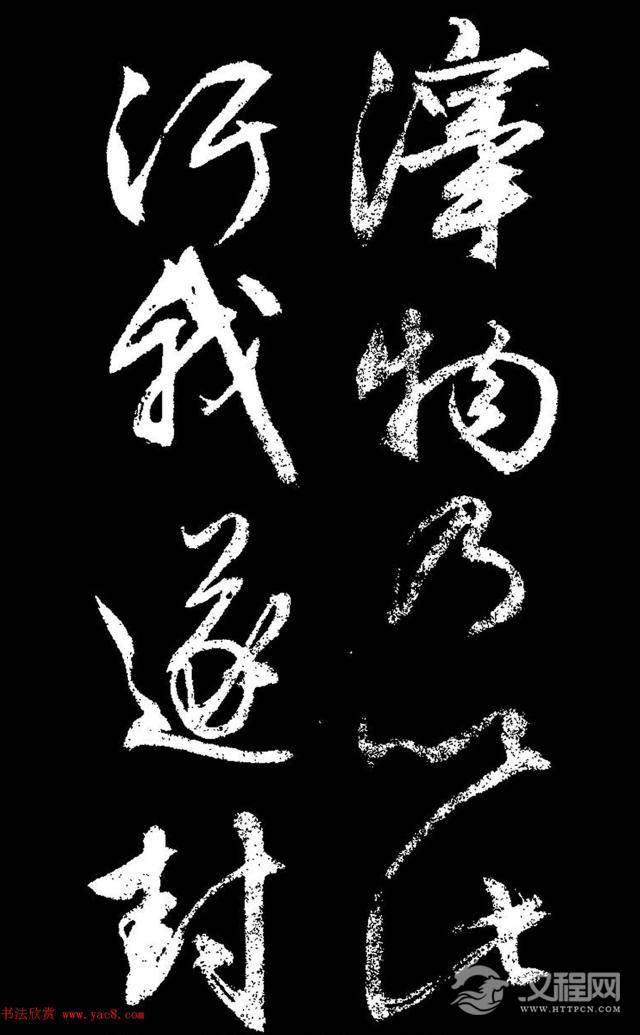 滓物乃以此
污我遂封
书法欣赏 www.yac8.com
汉程网
WWW.HTTPCN.COM